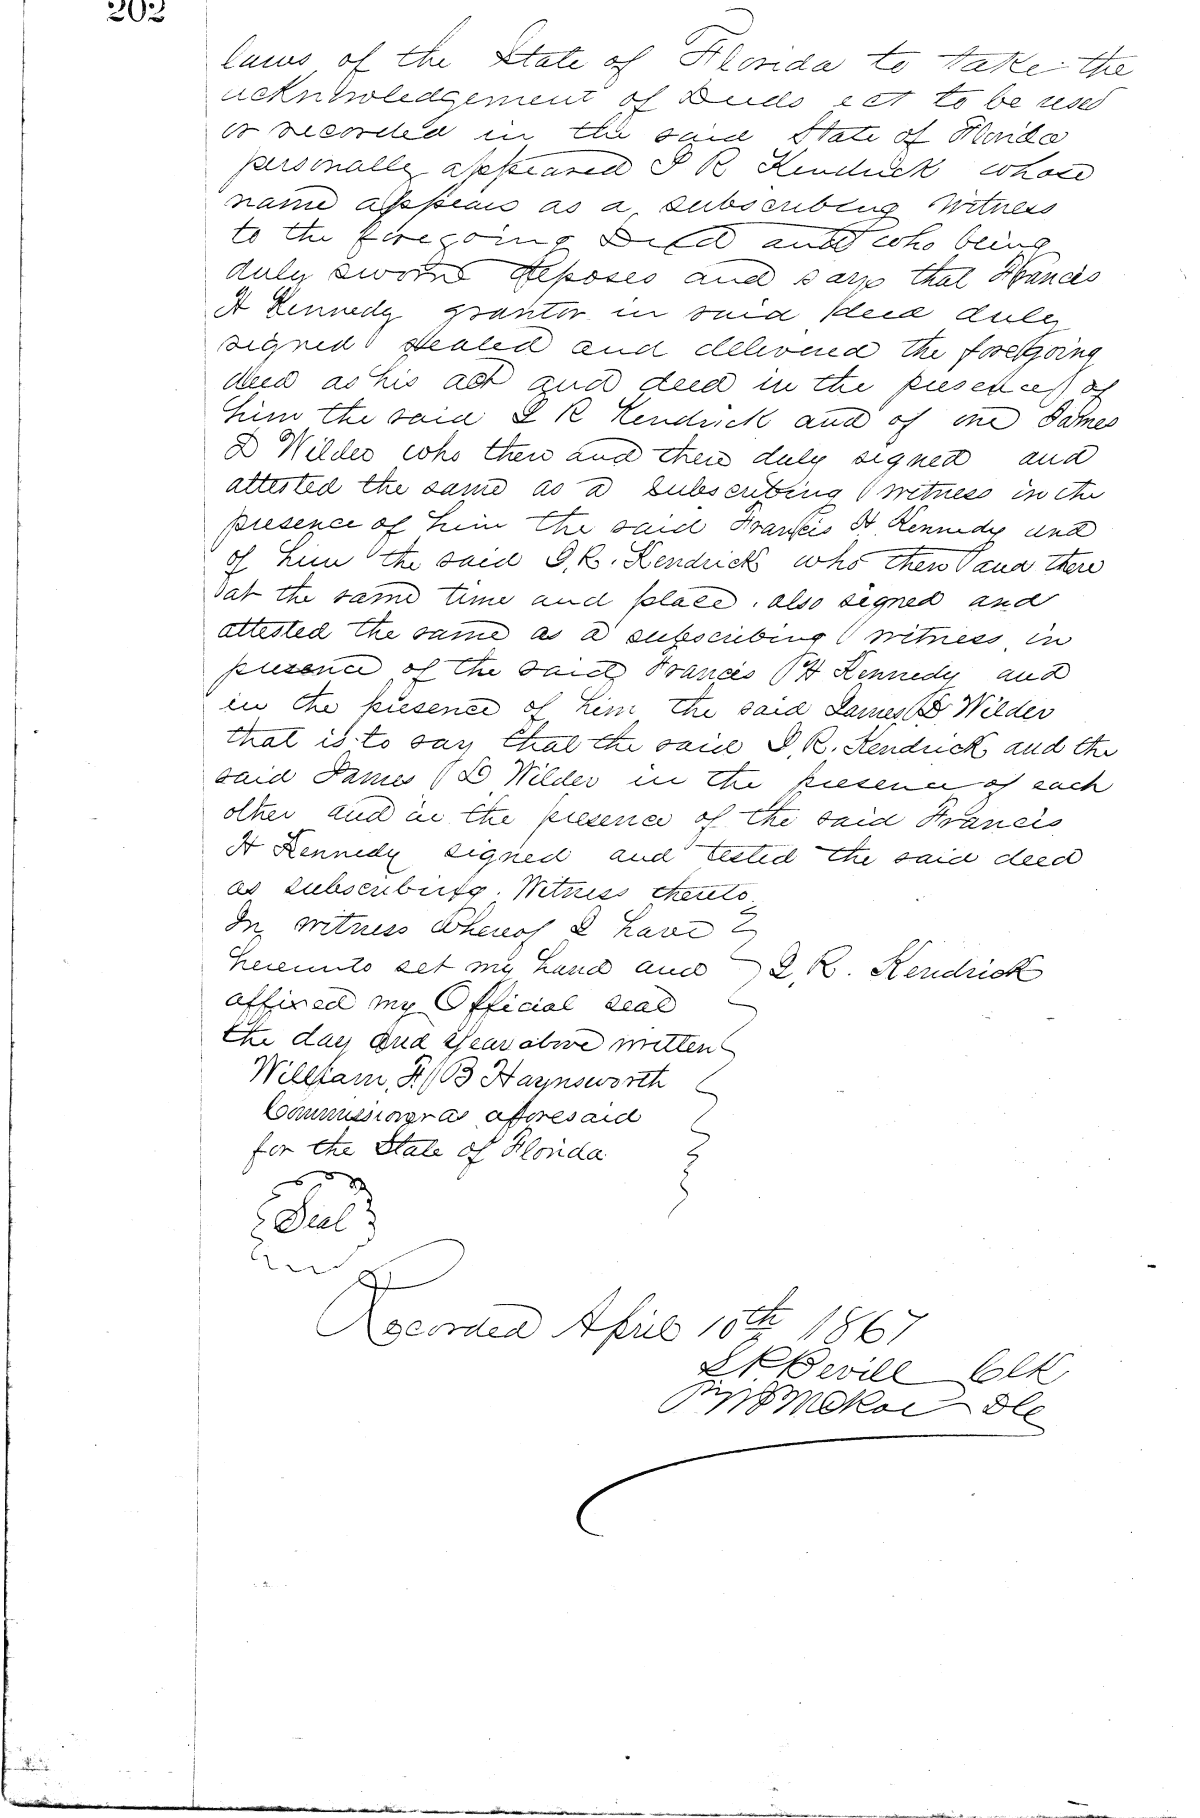 202
laws of the State of Florida to take the
acknowledgement of Deeds ect to be used
or recorded in the said State of Florida
personally appeared I R Kendrick whose
name appears as a subscribing witness
to the foregoing Deed and who being
duly sworn deposes and says that Francis
H Kennedy grantor in said deed duly
signed sealed and delivered the foregoing
deed as his act and deed in the presence of
him the said I R Kendrick and of one James
D Wilder who then and there duly signed and
attested the same as a subscribing witness in the
presence of him the said Francis H. Kennedy and
of him the said I. R. Kendrick who then and there
at the same time and place, also signed and
attested the same as a subscribing witness in
presence of the said Francis H Kennedy and
in the presence of him the said James D Wilder
that is to say that the said I. R. Kendrick and the
said James D Wilder in the presence of each
other and in the presence of the said Francis
H Kennedy signed and tested the said deed
as subscribing Witness thereto
In witness whereof I have
hereunto set my hand and I. R. Kendrick
affixed my Official seal
the day and year above written
William F B Haynsworth
Commissioner as aforesaid
for the State of Florida
Seal
Recorded April 10th 1867
Bevill Clk
McRae DC